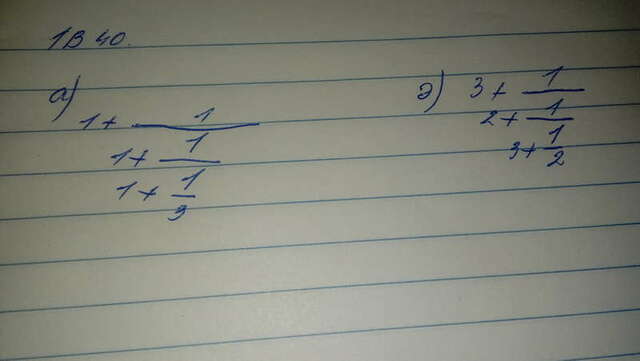 1В 40.
а) 1 + 1
1 + 1
1 + 1
3
э) 3 + 1
2 + 1
3 + 1
2